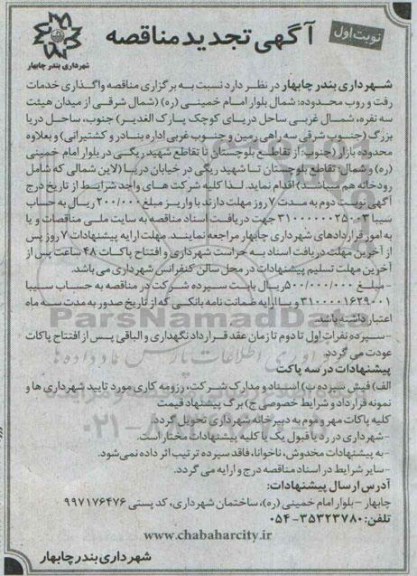 نوبت اول
آگهی تجدید مناقصه
شهرداری بندر چابهار
شهرداری بندر چابهار در نظر دارد نسبت به برگزاری مناقصه واگذاری خدمات
رفت و روب محدوده: شمال بلوار امام خمینی (ره) (شمال شرقی از میدان هیئت
سه نفره، شمال غربی ساحل دریای کوچک پارک الغدیر) جنوب، ساحل دریا
بزرگ (جنوب شرقی سه راهی زمین و جنوب غربی اداره بنادر و کشتیرانی) و بعلاوه
محدوده بازار (جنوب: از تقاطع بلوچستان تا تقاطع شهید ریگی در بلوار امام خمینی
(ره) و شمال: تقاطع بلوچستان تا شهید ریگی در خیابان دریا (لاین شمالی که شامل
رودخانه هم میباشد) اقدام نماید. لذا کلیه شرکت های واجد شرایط از تاریخ درج
آگهی نوبت دوم به مدت ۷ روز مهلت دارند با واریز مبلغ ۲۰۰/۰۰۰ ریال به حساب
سیبا ۳۱۰۰۰۰۰۰۲۵۰۰۳ جهت دریافت اسناد مناقصه به سایت ملی مناقصات و یا
به امور قراردادهای شهرداری چابهار مراجعه نمایند. مهلت ارایه پیشنهادات ۷ روز پس
از آخرین مهلت دریافت اسناد به حراست شهرداری و افتتاح پاکات ۴۸ ساعت پس از
آخرین مهلت تسلیم پیشنهادات در محل سالن کنفرانس شهرداری می باشد.
- مبلغ ۵۰۰/۰۰۰/۰۰۰ ریال بابت سپرده شرکت در مناقصه به حساب سیبا
۳۱۰۰۰۰۱۶۲۹۰۰۱ و یا ارایه ضمانت نامه بانکی که از تاریخ صدور به مدت سه ماه
اعتبار داشته باشد.
-سپرده نفرات اول تا دوم تا زمان عقد قرارداد نگهداری و الباقی پس از افتتاح پاکات
عودت می گردد.
پیشنهادات در سه پاکت
الف) فیش سپرده ب) اسناد و مدارک شرکت، رزومه کاری مورد تایید شهرداری ها و
نمونه قرارداد و شرایط خصوصی ج) برگ پیشنهاد قیمت
کلیه پاکات مهر و موم به دبیرخانه شهرداری تحویل گردد.
-شهرداری در رد یا قبول یک یا کلیه پیشنهادات مختار است.
-به پیشنهادات مخدوش، ناخوانا، فاقد سپرده ترتیب اثر داده نمی شود.
-سایر شرایط در اسناد مناقصه درج و ارایه می گردد.
آدرس ارسال پیشنهادات:
چابهار - بلوار امام خمینی (ره)، ساختمان شهرداری، کد پستی ۹۹۷۱۷۶۴۷۶
تلفن: ۳۵۳۲۳۷۸۰-۰۵۴
www.chabaharcity.ir
شهرداری بندر چابهار
ParsNamadData